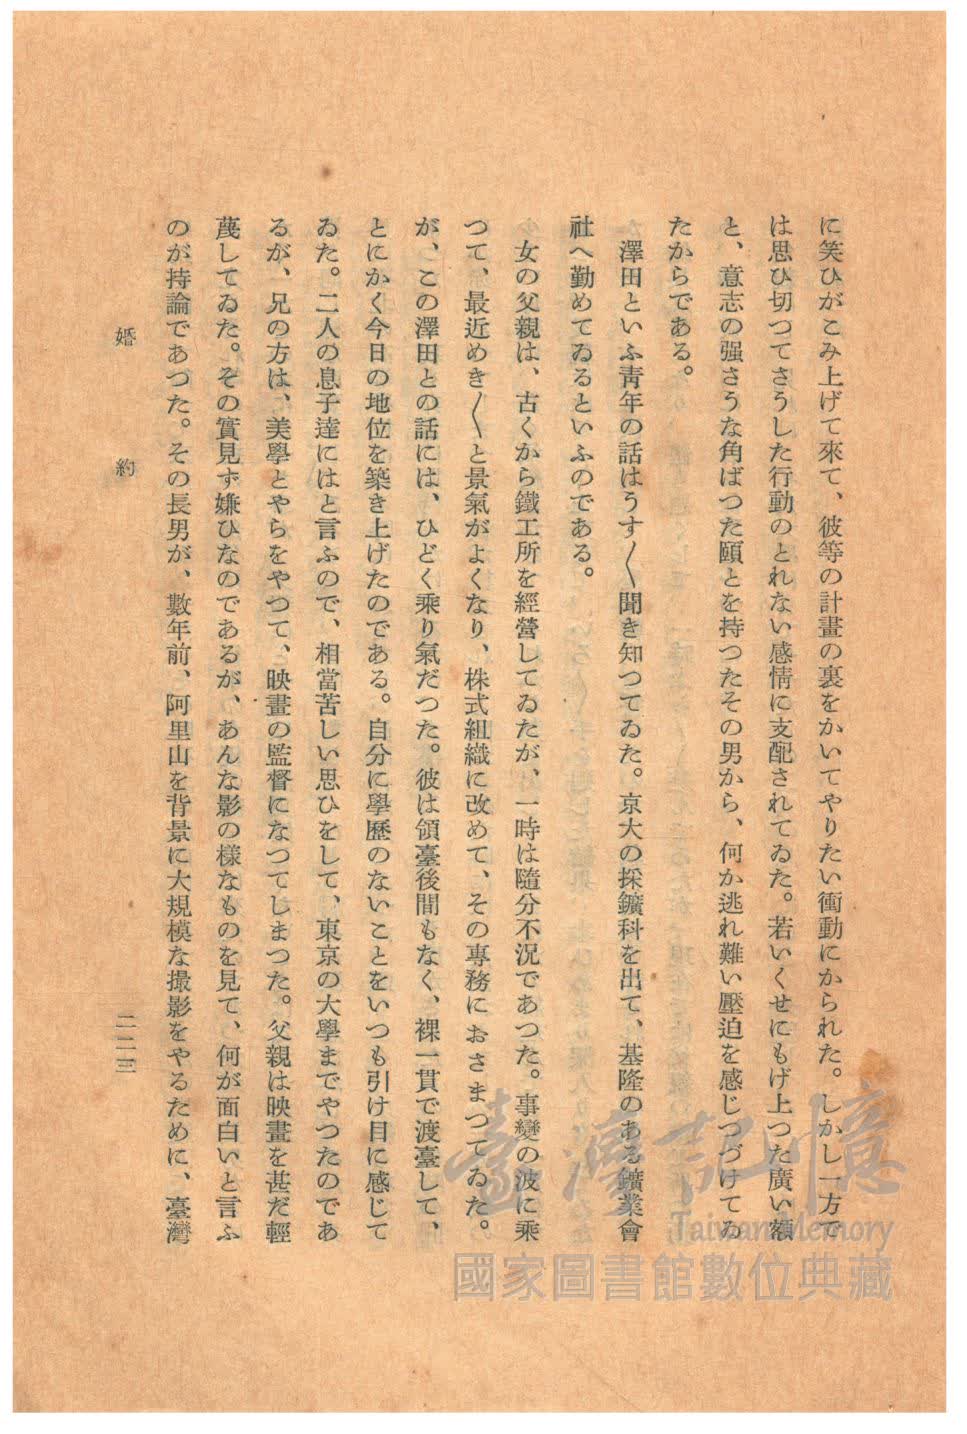 に笑ひがこみ上げて來て、彼等の計畫の裏をかいてやりたい衝動にかられた。しかし一方で
は思ひ切つてさうした行動のとれない感情に支配されてゐた。若いくせにもげ上つた廣い額
と、意志の强さうな角ばつた頤とを持つたその男から、何か逃れ難い壓迫を感じつづけてゐ
たからである。
澤田といふ靑年の話はうす〳〵聞き知つてゐた。京大の採鑛科を出て、基隆のある鑛業會
社へ勤めてゐるといふのである。
女の父親は、古くから鐵工所を經營してゐたが、一時は隨分不況であつた。事變の波に乘
つて、最近めき〳〵と景氣がよくなり、株式組織に改めて、その專務におさまつてゐた。
が、この澤田との話には、ひどく乘り氣だつた。彼は領臺後間もなく、裸一貫で渡臺して、
とにかく今日の地位を築き上げたのである。自分に學歷のないことをいつも引け目に感じて
ゐた。二人の息子達にはと言ふので、相當苦しい思ひをして、東京の大學までやつたのであ
るが、兄の方は、美學とやらをやつて、映畫の監督になつてしまつた。父親は映畫を甚だ輕
蔑してゐた。その實見ず嫌ひなのであるが、あんな影の樣なものを見て、何が面白いと言ふ
のが持論であつた。その長男が、數年前、阿里山を背景に大規模な撮影をやるために、臺灣
婚約
二二三
臺灣記憶
Taiwan Memory
國家圖書館數位典藏